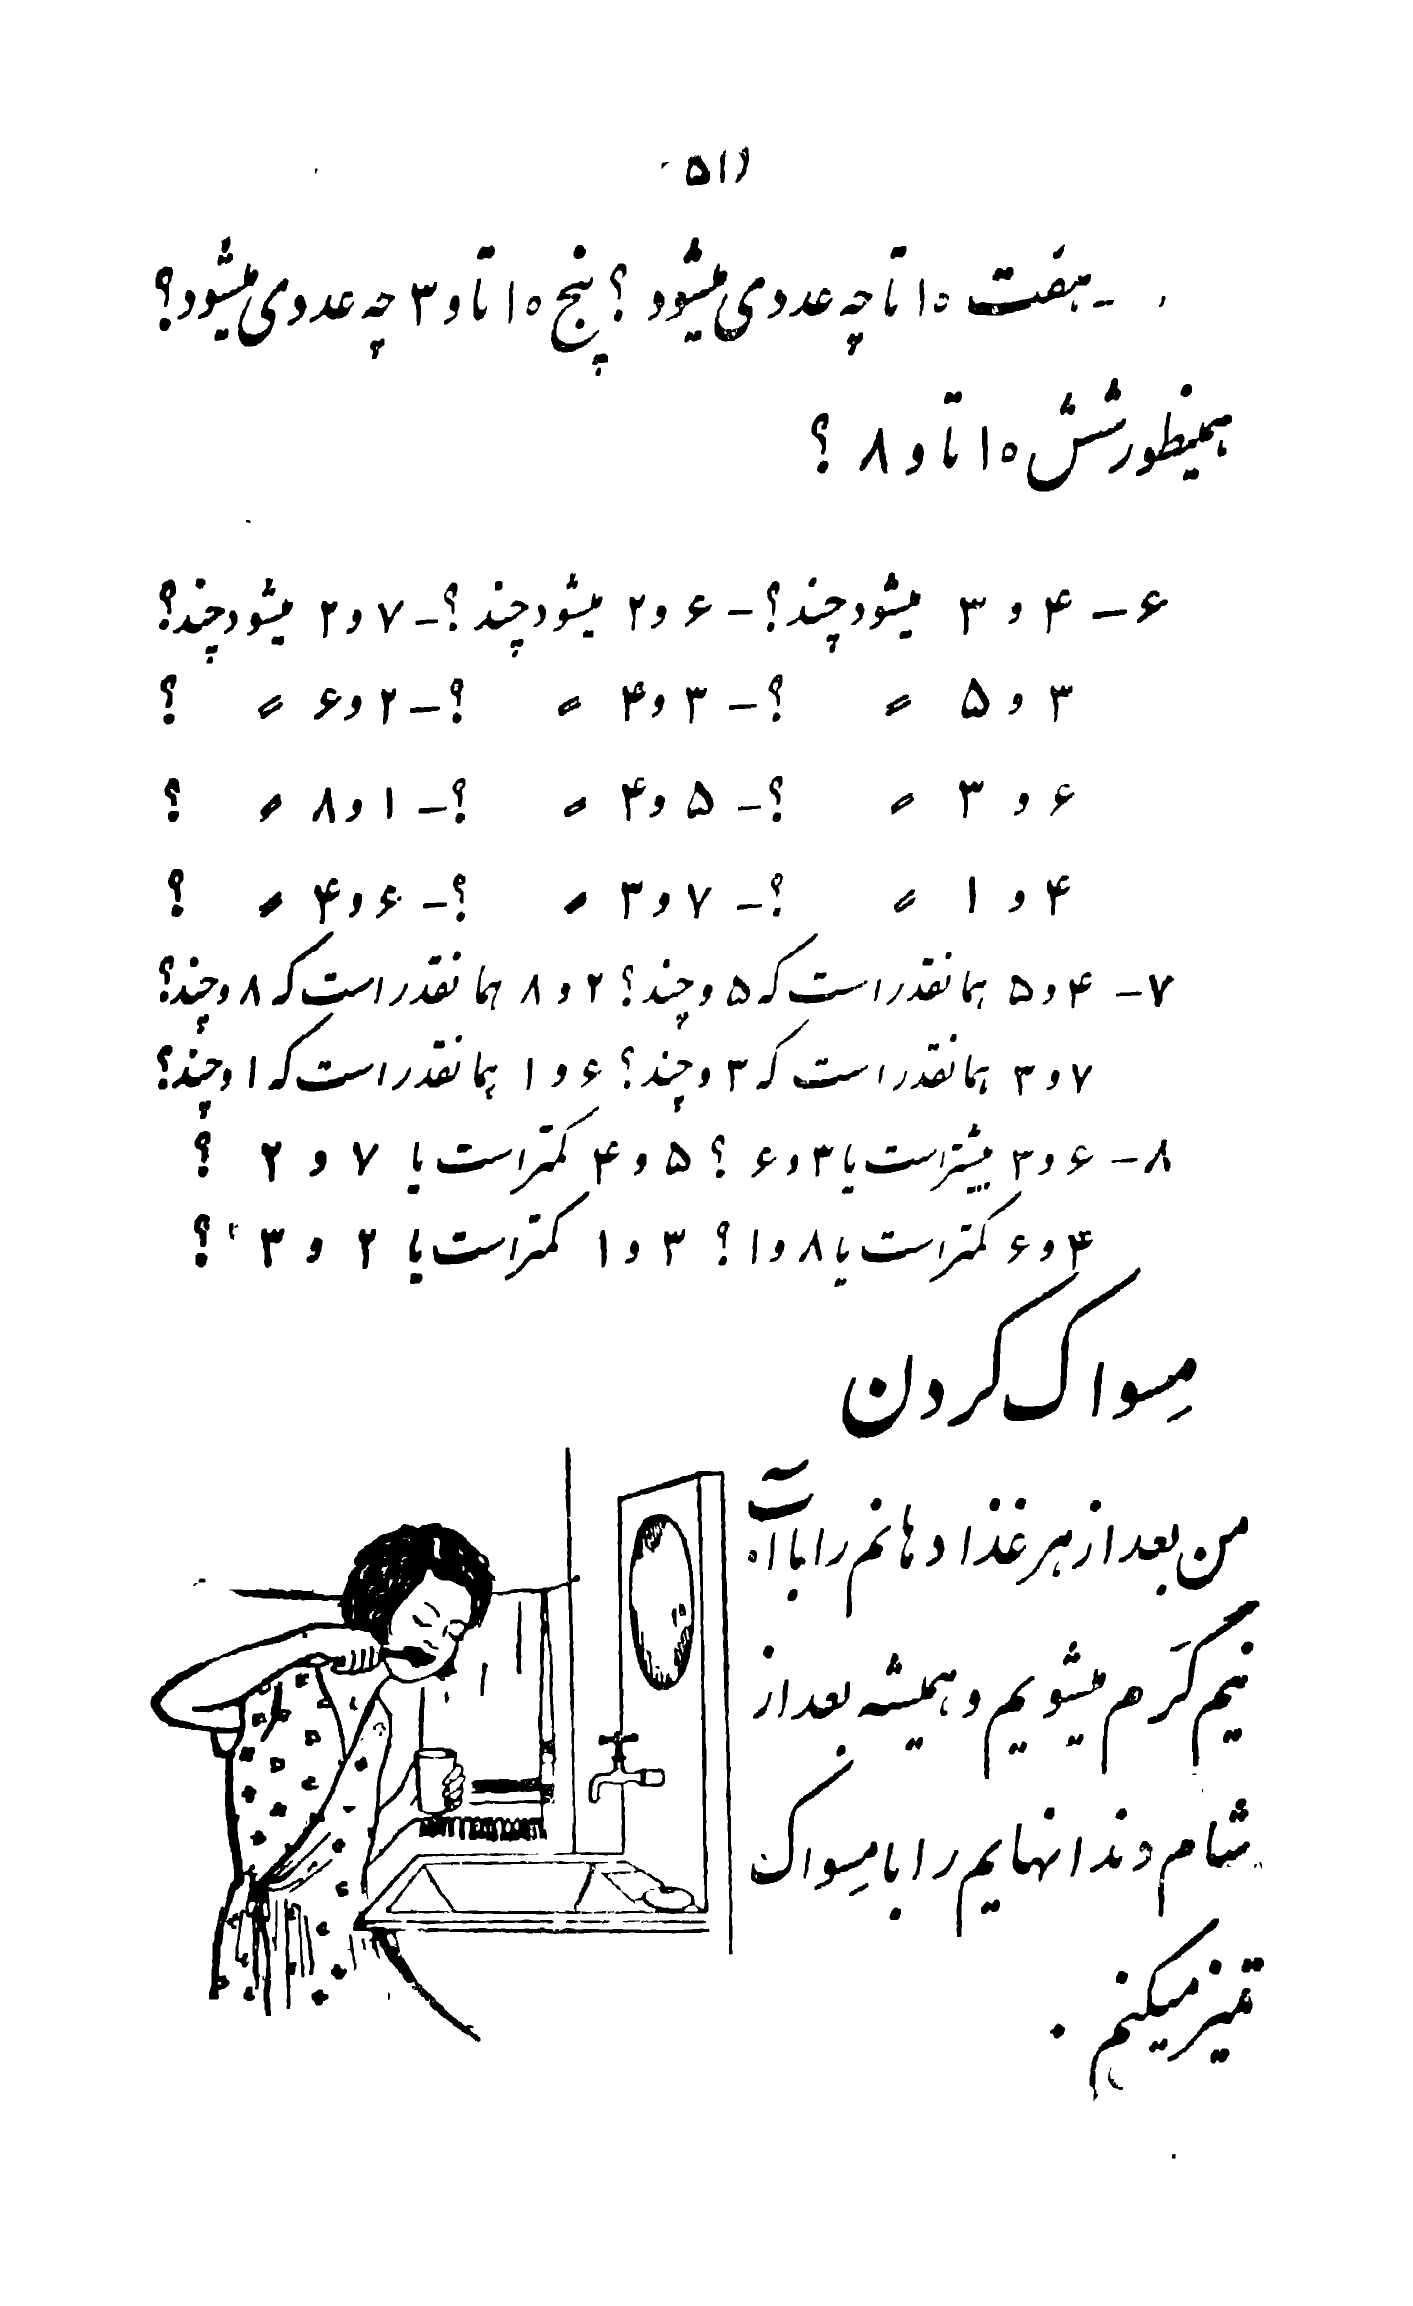 (۵۱
- هفت ۱۰ تا چه عددی میشود ؟ پنج ۱۰ تا و ۳ چه عددی میشود ؟
همینطور شش ۱۰ تا و ۸ ؟
۶ - ۴ و ۳ میشود چند ؟ - ۶ و ۲ میشود چند ؟ - ۷ و ۲ میشود چند ؟
۳ و ۵ 〃 ؟ - ۳ و ۴ 〃 ؟ - ۲ و ۶ 〃 ؟
۶ و ۳ 〃 ؟ - ۵ و ۴ 〃 ؟ - ۱ و ۸ 〃 ؟
۴ و ۱ 〃 ؟ - ۷ و ۳ 〃 ؟ - ۶ و ۴ 〃 ؟
۷ - ۴ و ۵ همانقدر است که ۵ و چند ؟ ۲ و ۸ همانقدر است که ۸ و چند ؟
۷ و ۳ همانقدر است که ۳ و چند ؟ ۶ و ۱ همانقدر است که ۱ و چند ؟
۸ - ۶ و ۳ بیشتر است یا ۳ و ۶ ؟ ۵ و ۴ کمتر است یا ۷ و ۲ ؟
۴ و ۶ کمتر است یا ۸ و ۱ ؟ ۳ و ۱ کمتر است یا ۲ و ۳ ؟
مِسواک کردن
من بعد از هر غذا دهانم را با آب
نیم گَرم میشویم و همیشه بعد از
شام دندانهایم را با مِسواک
تمیز میکنم .